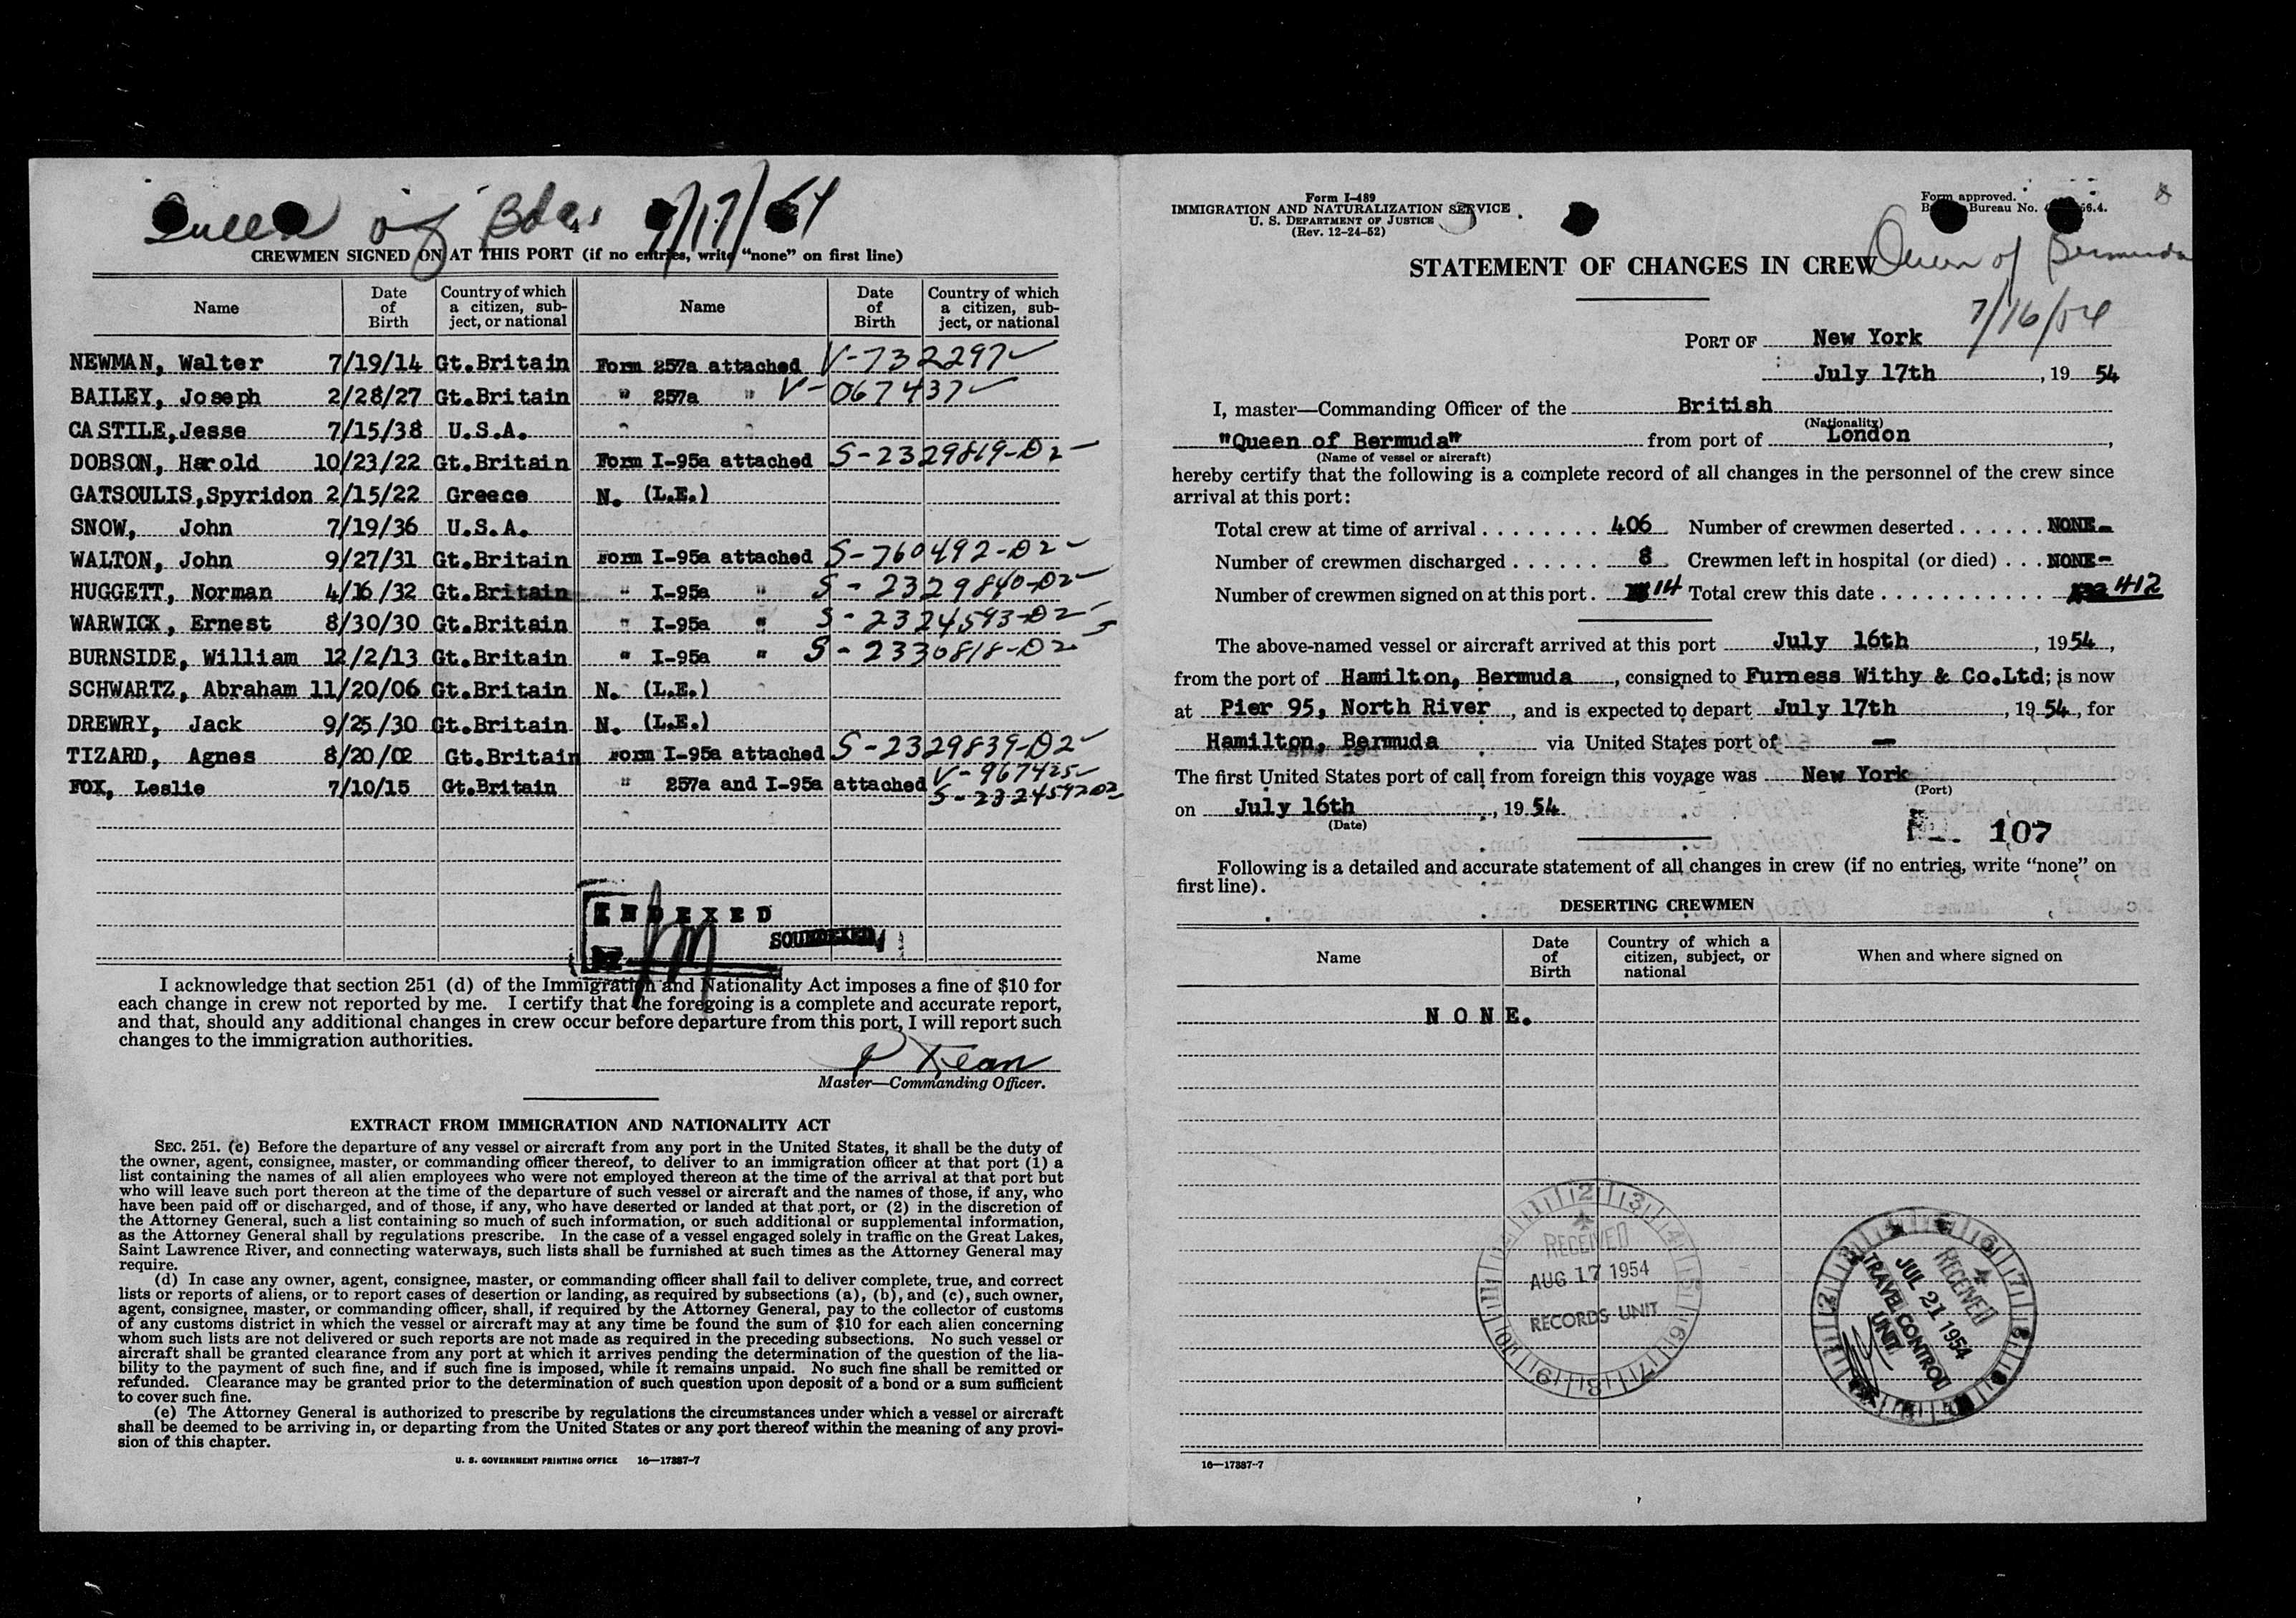 Queen of Bdas 7/17/54
CREWMEN SIGNED ON AT THIS PORT (if no entries, write "none" on first line)
Name Date of Birth Country of which a citizen, sub-ject, or national Name Date of Birth Country of which a citizen, sub-ject, or national
NEWMAN, Walter 7/19/14 Gt.Britain Form 257a attached V-732297
BAILEY, Joseph 2/28/27 Gt.Britain " 257a " V-067437
CASTILE,Jesse 7/15/38 U.S.A.
DOBSON, Harold 10/23/22 Gt.Britain Form I-95a attached S-2329819-D2
GATSOULIS,Spyridon 2/15/22 Greece N. (L.E.)
SNOW, John 7/19/36 U.S.A.
WALTON, John 9/27/31 Gt.Britain Form I-95a attached S-760492-D2
HUGGETT, Norman 4/16/32 Gt.Britain " I-95a " S-2329840-D2
WARWICK, Ernest 8/30/30 Gt.Britain " I-95a " S-2324593-D2
BURNSIDE, William 12/2/13 Gt.Britain " I-95a " S-2330818-D2
SCHWARTZ, Abraham 11/20/06 Gt.Britain N. (L.E.)
DREWRY, Jack 9/25/30 Gt.Britain N. (L.E.)
TIZARD, Agnes 8/20/02 Gt.Britain Form I-95a attached S-2329839-D2
FOX, Leslie 7/10/15 Gt.Britain " 257a and I-95a attached V-967425
S-2324592D2
INDEXED
SOUNDEXED
I acknowledge that section 251 (d) of the Immigration and Nationality Act imposes a fine of $10 for
each change in crew not reported by me. I certify that the foregoing is a complete and accurate report,
and that, should any additional changes in crew occur before departure from this port, I will report such
changes to the immigration authorities.
P Kean
Master—Commanding Officer.
EXTRACT FROM IMMIGRATION AND NATIONALITY ACT
SEC. 251. (c) Before the departure of any vessel or aircraft from any port in the United States, it shall be the duty of
the owner, agent, consignee, master, or commanding officer thereof, to deliver to an immigration officer at that port (1) a
list containing the names of all alien employees who were not employed thereon at the time of the arrival at that port but
who will leave such port thereon at the time of the departure of such vessel or aircraft and the names of those, if any, who
have been paid off or discharged, and of those, if any, who have deserted or landed at that port, or (2) in the discretion of
the Attorney General, such a list containing so much of such information, or such additional or supplemental information,
as the Attorney General shall by regulations prescribe. In the case of a vessel engaged solely in traffic on the Great Lakes,
Saint Lawrence River, and connecting waterways, such lists shall be furnished at such times as the Attorney General may
require.
(d) In case any owner, agent, consignee, master, or commanding officer shall fail to deliver complete, true, and correct
lists or reports of aliens, or to report cases of desertion or landing, as required by subsections (a), (b), and (c), such owner,
agent, consignee, master, or commanding officer, shall, if required by the Attorney General, pay to the collector of customs
of any customs district in which the vessel or aircraft may at any time be found the sum of $10 for each alien concerning
whom such lists are not delivered or such reports are not made as required in the preceding subsections. No such vessel or
aircraft shall be granted clearance from any port at which it arrives pending the determination of the question of the lia-
bility to the payment of such fine, and if such fine is imposed, while it remains unpaid. No such fine shall be remitted or
refunded. Clearance may be granted prior to the determination of such question upon deposit of a bond or a sum sufficient
to cover such fine.
(e) The Attorney General is authorized to prescribe by regulations the circumstances under which a vessel or aircraft
shall be deemed to be arriving in, or departing from the United States or any port thereof within the meaning of any provi-
sion of this chapter.
U. S. GOVERNMENT PRINTING OFFICE 16—17387-7
Form I-489
IMMIGRATION AND NATURALIZATION SERVICE
U. S. DEPARTMENT OF JUSTICE
(Rev. 12-24-52)
Form approved.
Bureau No.
Queen of Bermuda
STATEMENT OF CHANGES IN CREW
7/16/54
PORT OF New York
July 17th, 19 54
I, master—Commanding Officer of the British
(Nationality)
"Queen of Bermuda" from port of London,
(Name of vessel or aircraft)
hereby certify that the following is a complete record of all changes in the personnel of the crew since
arrival at this port:
Total crew at time of arrival 406 Number of crewmen deserted NONE-
Number of crewmen discharged 8 Crewmen left in hospital (or died) NONE-
Number of crewmen signed on at this port. 14 Total crew this date 412
The above-named vessel or aircraft arrived at this port July 16th, 1954,
from the port of Hamilton, Bermuda, consigned to Furness Withy & Co.Ltd; is now
at Pier 95, North River, and is expected to depart July 17th, 1954, for
Hamilton, Bermuda via United States port of —
The first United States port of call from foreign this voyage was New York
(Port)
on July 16th, 19 54.
(Date)
107
Following is a detailed and accurate statement of all changes in crew (if no entries, write "none" on
first line).
DESERTING CREWMEN
Name Date of Birth Country of which a citizen, subject, or national When and where signed on
NONE.
RECEIVED
AUG 17 1954
RECORDS UNIT
RECEIVED
JUL 21 1954
TRAVEL CONTROL
UNIT
16—17387-7